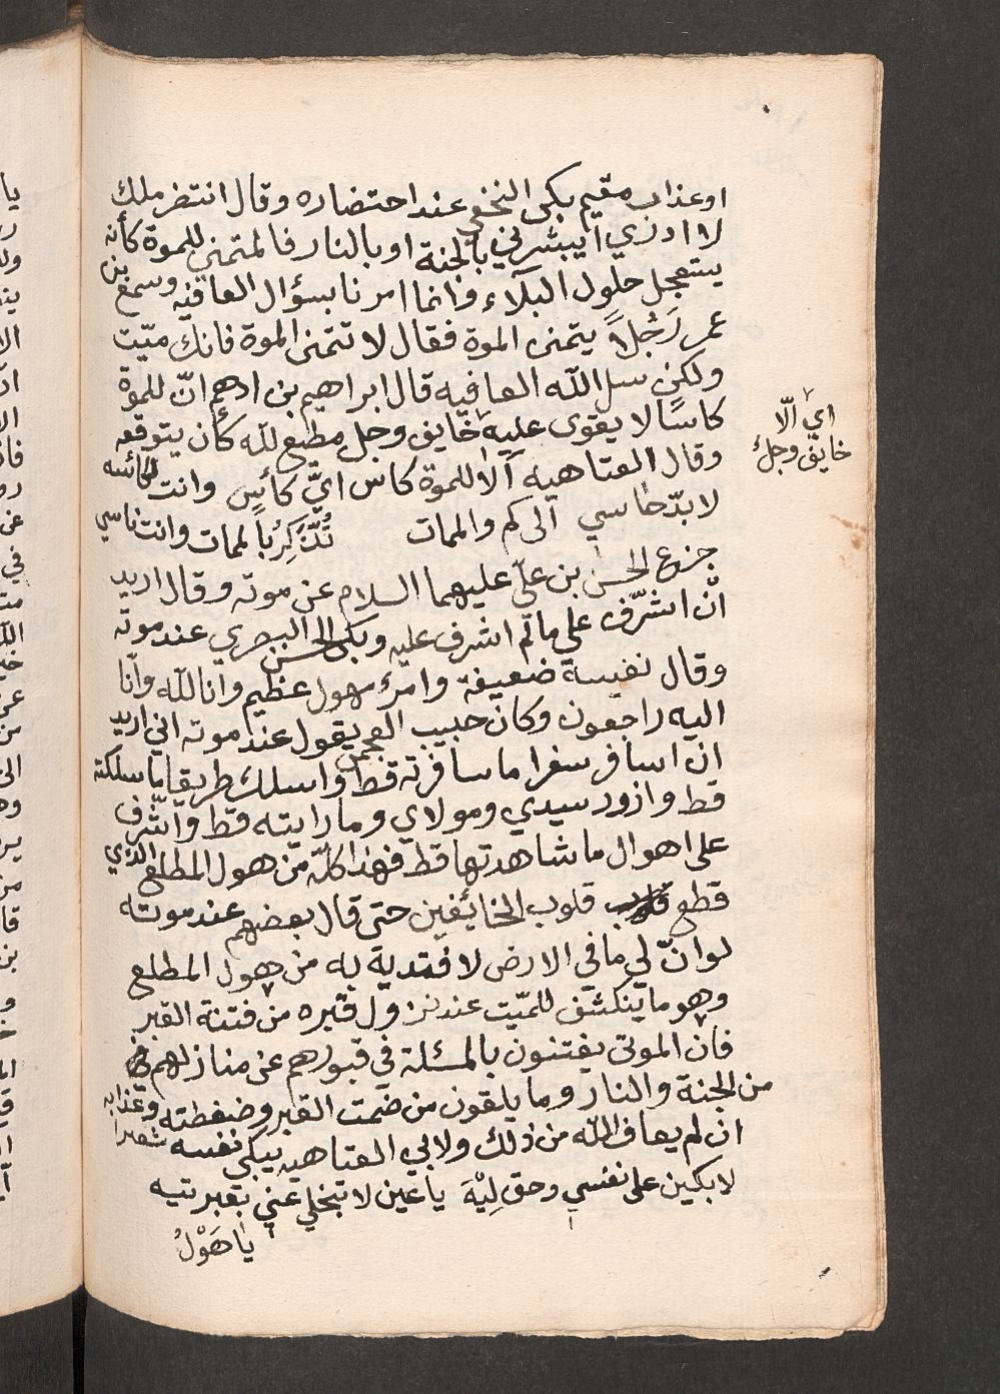 او عذاب مقيم بكى النخعي عند احتضاره وقال انتضر ملك
لا ادزي ايبشرني بالجنة او بالنار فالمتمني للموة كأنه
يستعجل حلول البلآء وانما امرنا بسؤال العافيه وسمع بن
عمر رَجُلاً يتمنى الموة فقال لا تتمنى الموة فانك ميّت
ولكن سل الله العافيه قال ابراهيم بن ادهم انّ للموة
كاسًا لا يقوى عليه خايف وجل مطيع لله كأن يتوقعه
اي الّا
خايف وجل
وقال العتاهيه اَلا للموة كاس ايّ كأسٍ وانت لكائسه
لا بدّ حاسي الى كم والممات تُذَكِرُ بالممات وانت ناسي
جزع الحسن بن علّي عليهما السلام عن موته وقال اريد
انْ اشرّف على ما لم اشرف عليه وبكى الحسن البصري عند موته
وقال نفيسة ضعيفة وامرء مهول عظيم وانا لله وانّا
اليه راجعون وكان حبيب العجمي يقول عند موته اني اريد
ان اسافر سفرا ما سافرته قط واسلك طريقا ما سلكته
قط وازور سيدي ومولاي وما رايته قط واشّرف
على اهوال ما شاهدتها قط فهذا كلّه من هول المطلع الذي
قطع قلوب الخائفين حتى قال بعضهم عند موته
لو انّ لي ما في الارض لافتدية به من هول المطلع
وهو ما ينكشف للميّت عند نزول قبره من فتنة القبر
فان الموتى يفتنون بالمسئلة في قبورهم عن منازلهم
من الجنة والنار وما يلقون من ضمت القبر وضغطته وعذابه
ان لم يعاف الله من ذلك ولابي العتاهيه يبكي نفسه شعرا
لابكين على نفسي وحق لِيْهَ يا عين لا تبخلي عني بعبرتيه
يا هَوْلُ